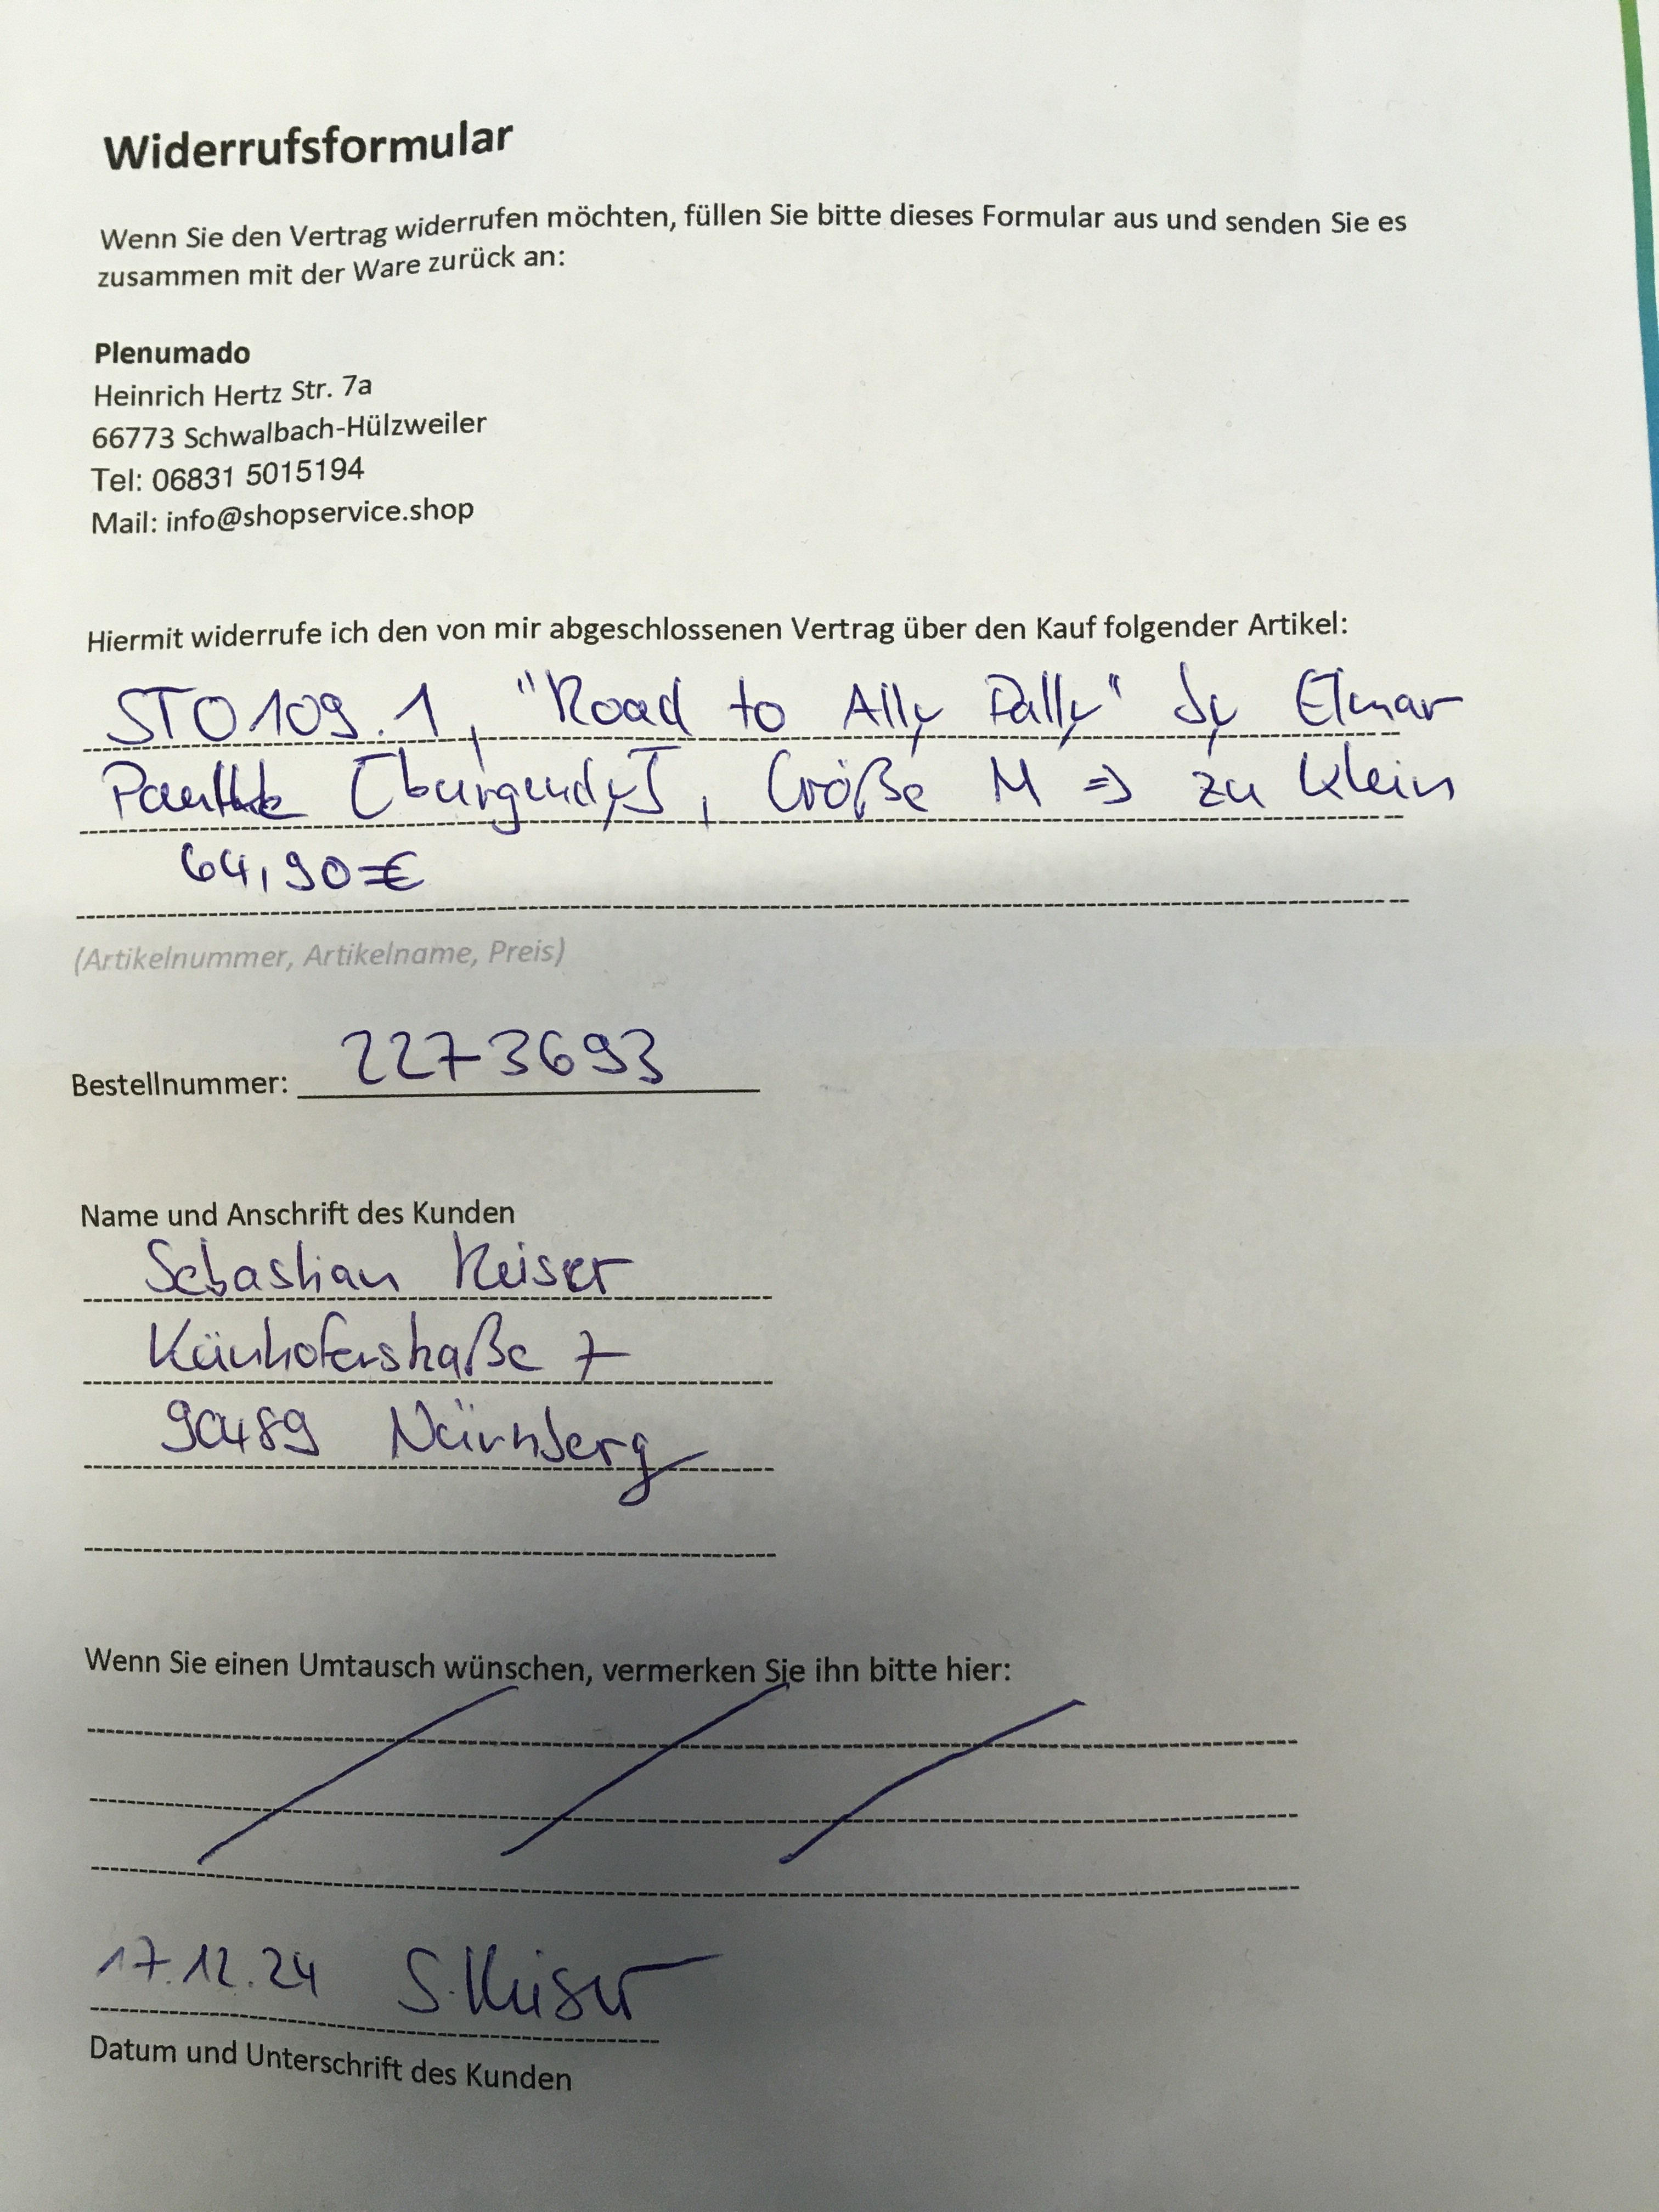 Widerrufsformular
Wenn Sie den Vertrag widerrufen möchten, füllen Sie bitte dieses Formular aus und senden Sie es
zusammen mit der Ware zurück an:
Plenumado
Heinrich Hertz Str. 7a
66773 Schwalbach-Hülzweiler
Tel: 06831 5015194
Mail: info@shopservice.shop
Hiermit widerrufe ich den von mir abgeschlossenen Vertrag über den Kauf folgender Artikel:
STO109.1, "Road to Ally Pally" by Elmar
[burgundy], Größe M => zu klein
64,90€
(Artikelnummer, Artikelname, Preis)
Bestellnummer: 2273693
Name und Anschrift des Kunden
Sebastian Keiser
Künhoferstraße 7
90489 Nürnberg
Wenn Sie einen Umtausch wünschen, vermerken Sie ihn bitte hier:
17.12.24 S. Keiser
Datum und Unterschrift des Kunden